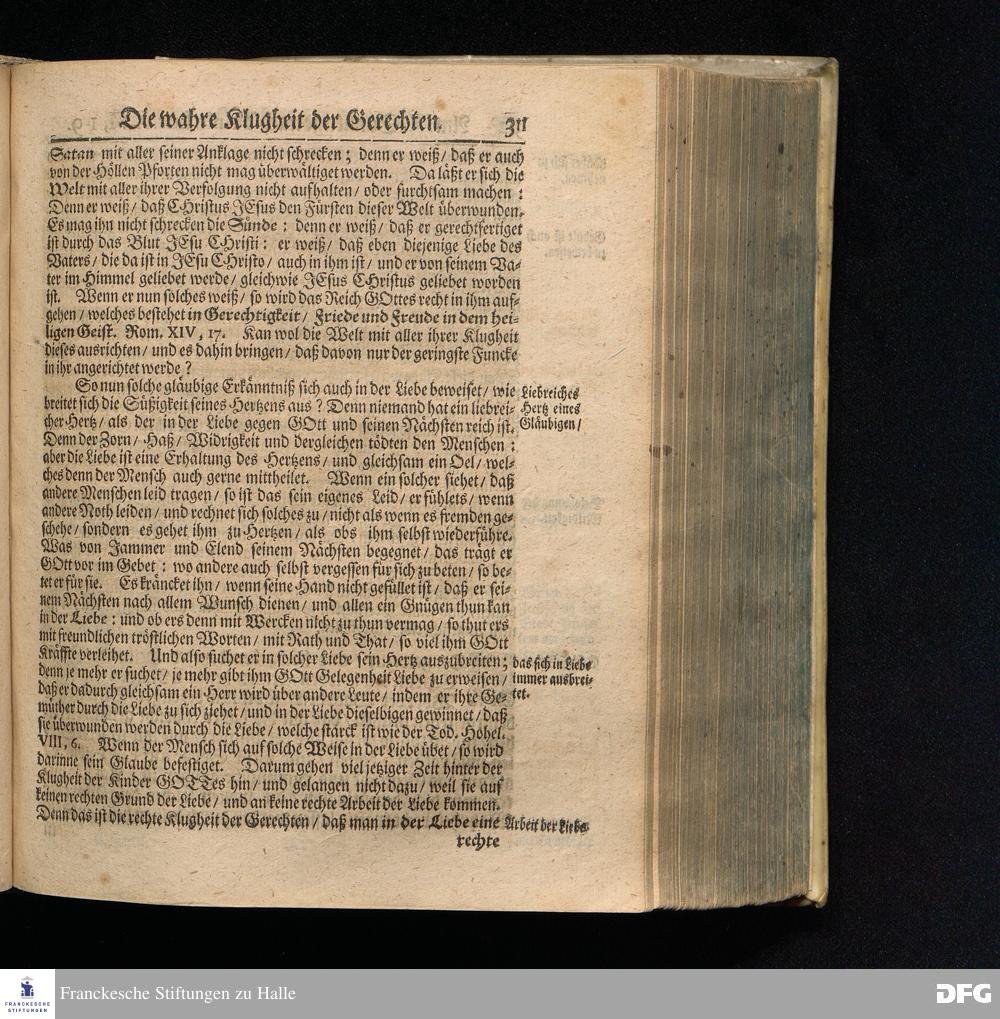 Die wahre Klugheit der Gerechten. 311
Satan mit aller seiner Anklage nicht schrecken; denn er weiß/ daß er auch
von der Höllen Pforten nicht mag überwältiget werden. Da läßt er sich die
Welt mit aller ihrer Verfolgung nicht aufhalten/ oder furchtsam machen:
Denn er weiß/ daß CHristus JEsus den Fürsten dieser Welt überwunden.
Es mag ihn nicht schrecken die Sünde: denn er weiß/ daß er gerechtfertiget
ist durch das Blut JEsu CHristi: er weiß/ daß eben diejenige Liebe des
Vaters/ die da ist in JEsu CHristo/ auch in ihm ist/ und er von seinem Va-
ter im Himmel geliebet werde/ gleichwie JEsus CHristus geliebet worden
ist. Wenn er nun solches weiß/ so wird das Reich GOttes recht in ihm auf-
gehen/ welches bestehet in Gerechtigkeit/ Friede und Freude in dem hei-
ligen Geist. Rom. XIV, 17. Kan wol die Welt mit aller ihrer Klugheit
dieses ausrichten/ und es dahin bringen/ daß davon nur der geringste Funcke
in ihr angerichtet werde?
So nun solche gläubige Erkänntniß sich auch in der Liebe beweiset/ wie
breitet sich die Süßigkeit seines Hertzens aus? Denn niemand hat ein liebrei-
cher Hertz/ als der in der Liebe gegen GOtt und seinen Nächsten reich ist.
Denn der Zorn/ Haß/ Widrigkeit und dergleichen tödten den Menschen:
aber die Liebe ist eine Erhaltung des Hertzens/ und gleichsam ein Oel/ wel-
ches denn der Mensch auch gerne mittheilet. Wenn ein solcher siehet/ daß
andere Menschen leid tragen/ so ist das sein eigenes Leid/ er fühlets/ wenn
andere Noth leiden/ und rechnet sich solches zu/ nicht als wenn es fremden ge-
schehe/ sondern es gehet ihm zu Hertzen/ als obs ihm selbst wiederführe.
Was von Jammer und Elend seinem Nächsten begegnet/ das trägt er
GOtt vor im Gebet: wo andere auch selbst vergessen für sich zu beten/ so be-
tet er für sie. Es kräncket ihn/ wenn seine Hand nicht gefüllet ist/ daß er sei-
nem Nächsten nach allem Wunsch dienen/ und allen ein Gnügen thun kan
in der Liebe: und ob ers denn mit Wercken nicht zu thun vermag/ so thut ers
mit freundlichen tröstlichen Worten/ mit Rath und That/ so viel ihm GOtt
Kräffte verleihet. Und also suchet er in solcher Liebe sein Hertz auszubreiten;
denn je mehr er suchet/ je mehr gibt ihm GOtt Gelegenheit Liebe zu erweisen/
daß er dadurch gleichsam ein Herr wird über andere Leute/ indem er ihre Ge-
müther durch die Liebe zu sich ziehet/ und in der Liebe dieselbigen gewinnet/ daß
sie überwunden werden durch die Liebe/ welche starck ist wie der Tod. Hohel.
VIII, 6. Wenn der Mensch sich auf solche Weise in der Liebe übet/ so wird
darinne sein Glaube befestiget. Darum gehen viel jetziger Zeit hinter der
Klugheit der Kinder GOTTes hin/ und gelangen nicht dazu/ weil sie auf
keinen rechten Grund der Liebe/ und an keine rechte Arbeit der Liebe kommen.
Denn das ist die rechte Klugheit der Gerechten/ daß man in der Liebe eine
rechte
Liebreiches
Hertz eines
Gläubigen/
das sich in Liebe
immer ausbrei-
tet.
Arbeit der Liebe
FRANCKESCHE
STIFTUNGEN
Franckesche Stiftungen zu Halle
DFG